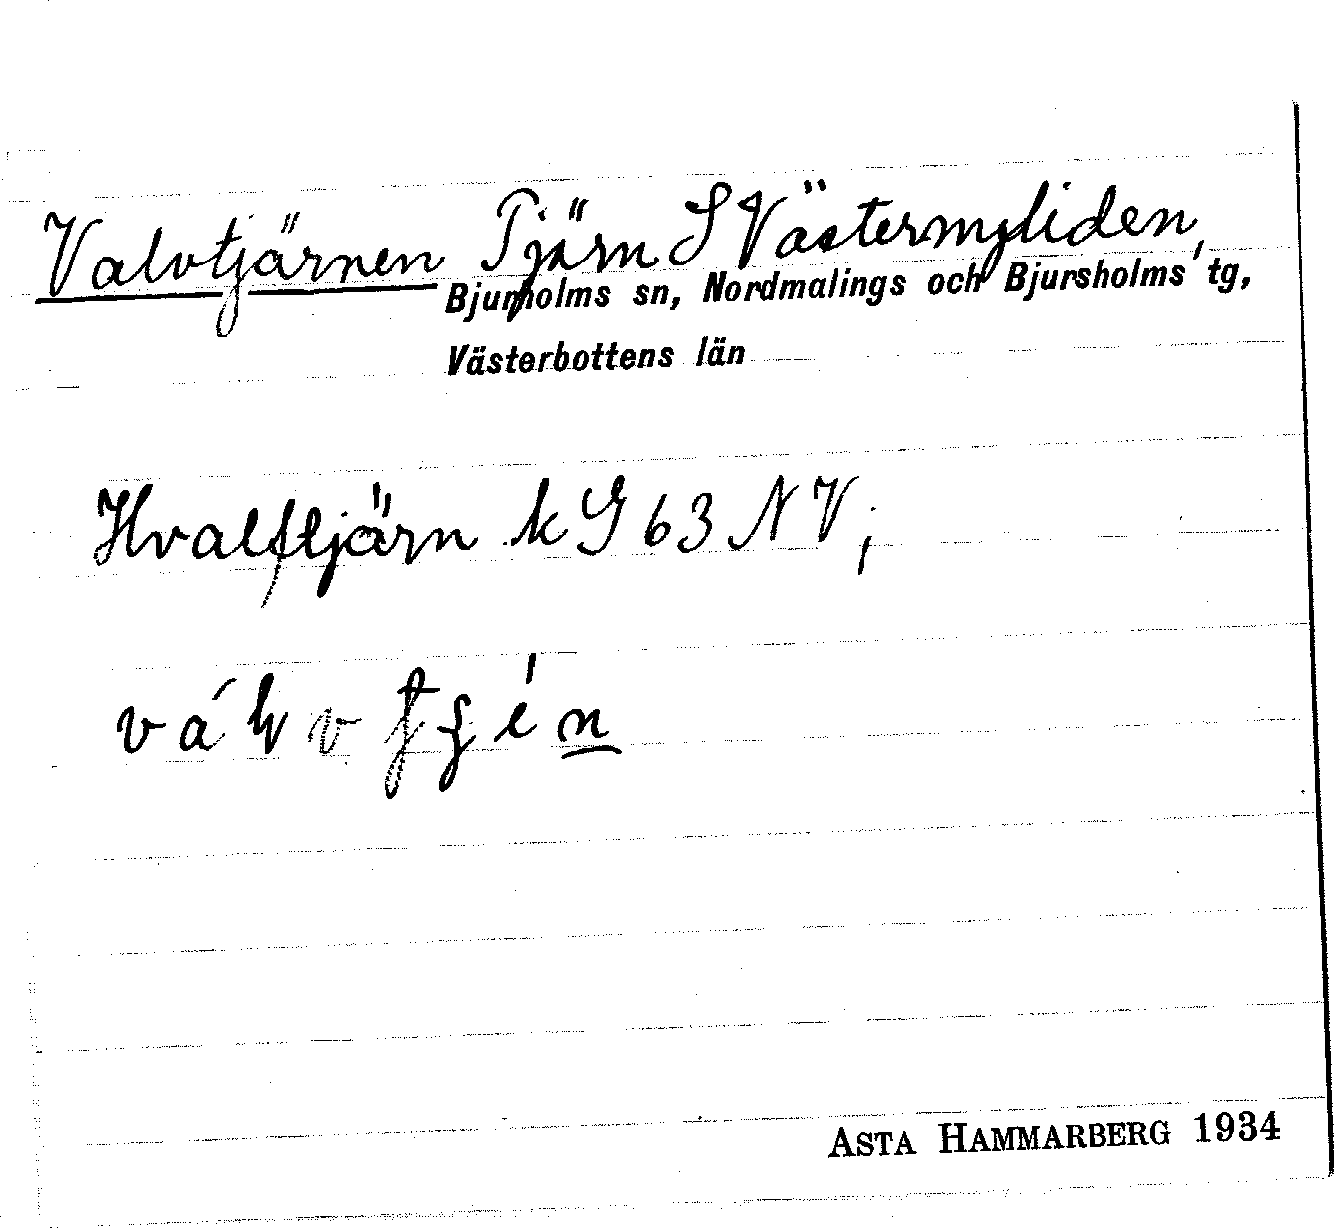 Valvtjärnen Tjärn S Västermyliden,
Bjurholms sn, Nordmalings och Bjursholms tg,
Västerbottens län
Hvalftjärn k G 63 NV;
ASTA HAMMARBERG 1934